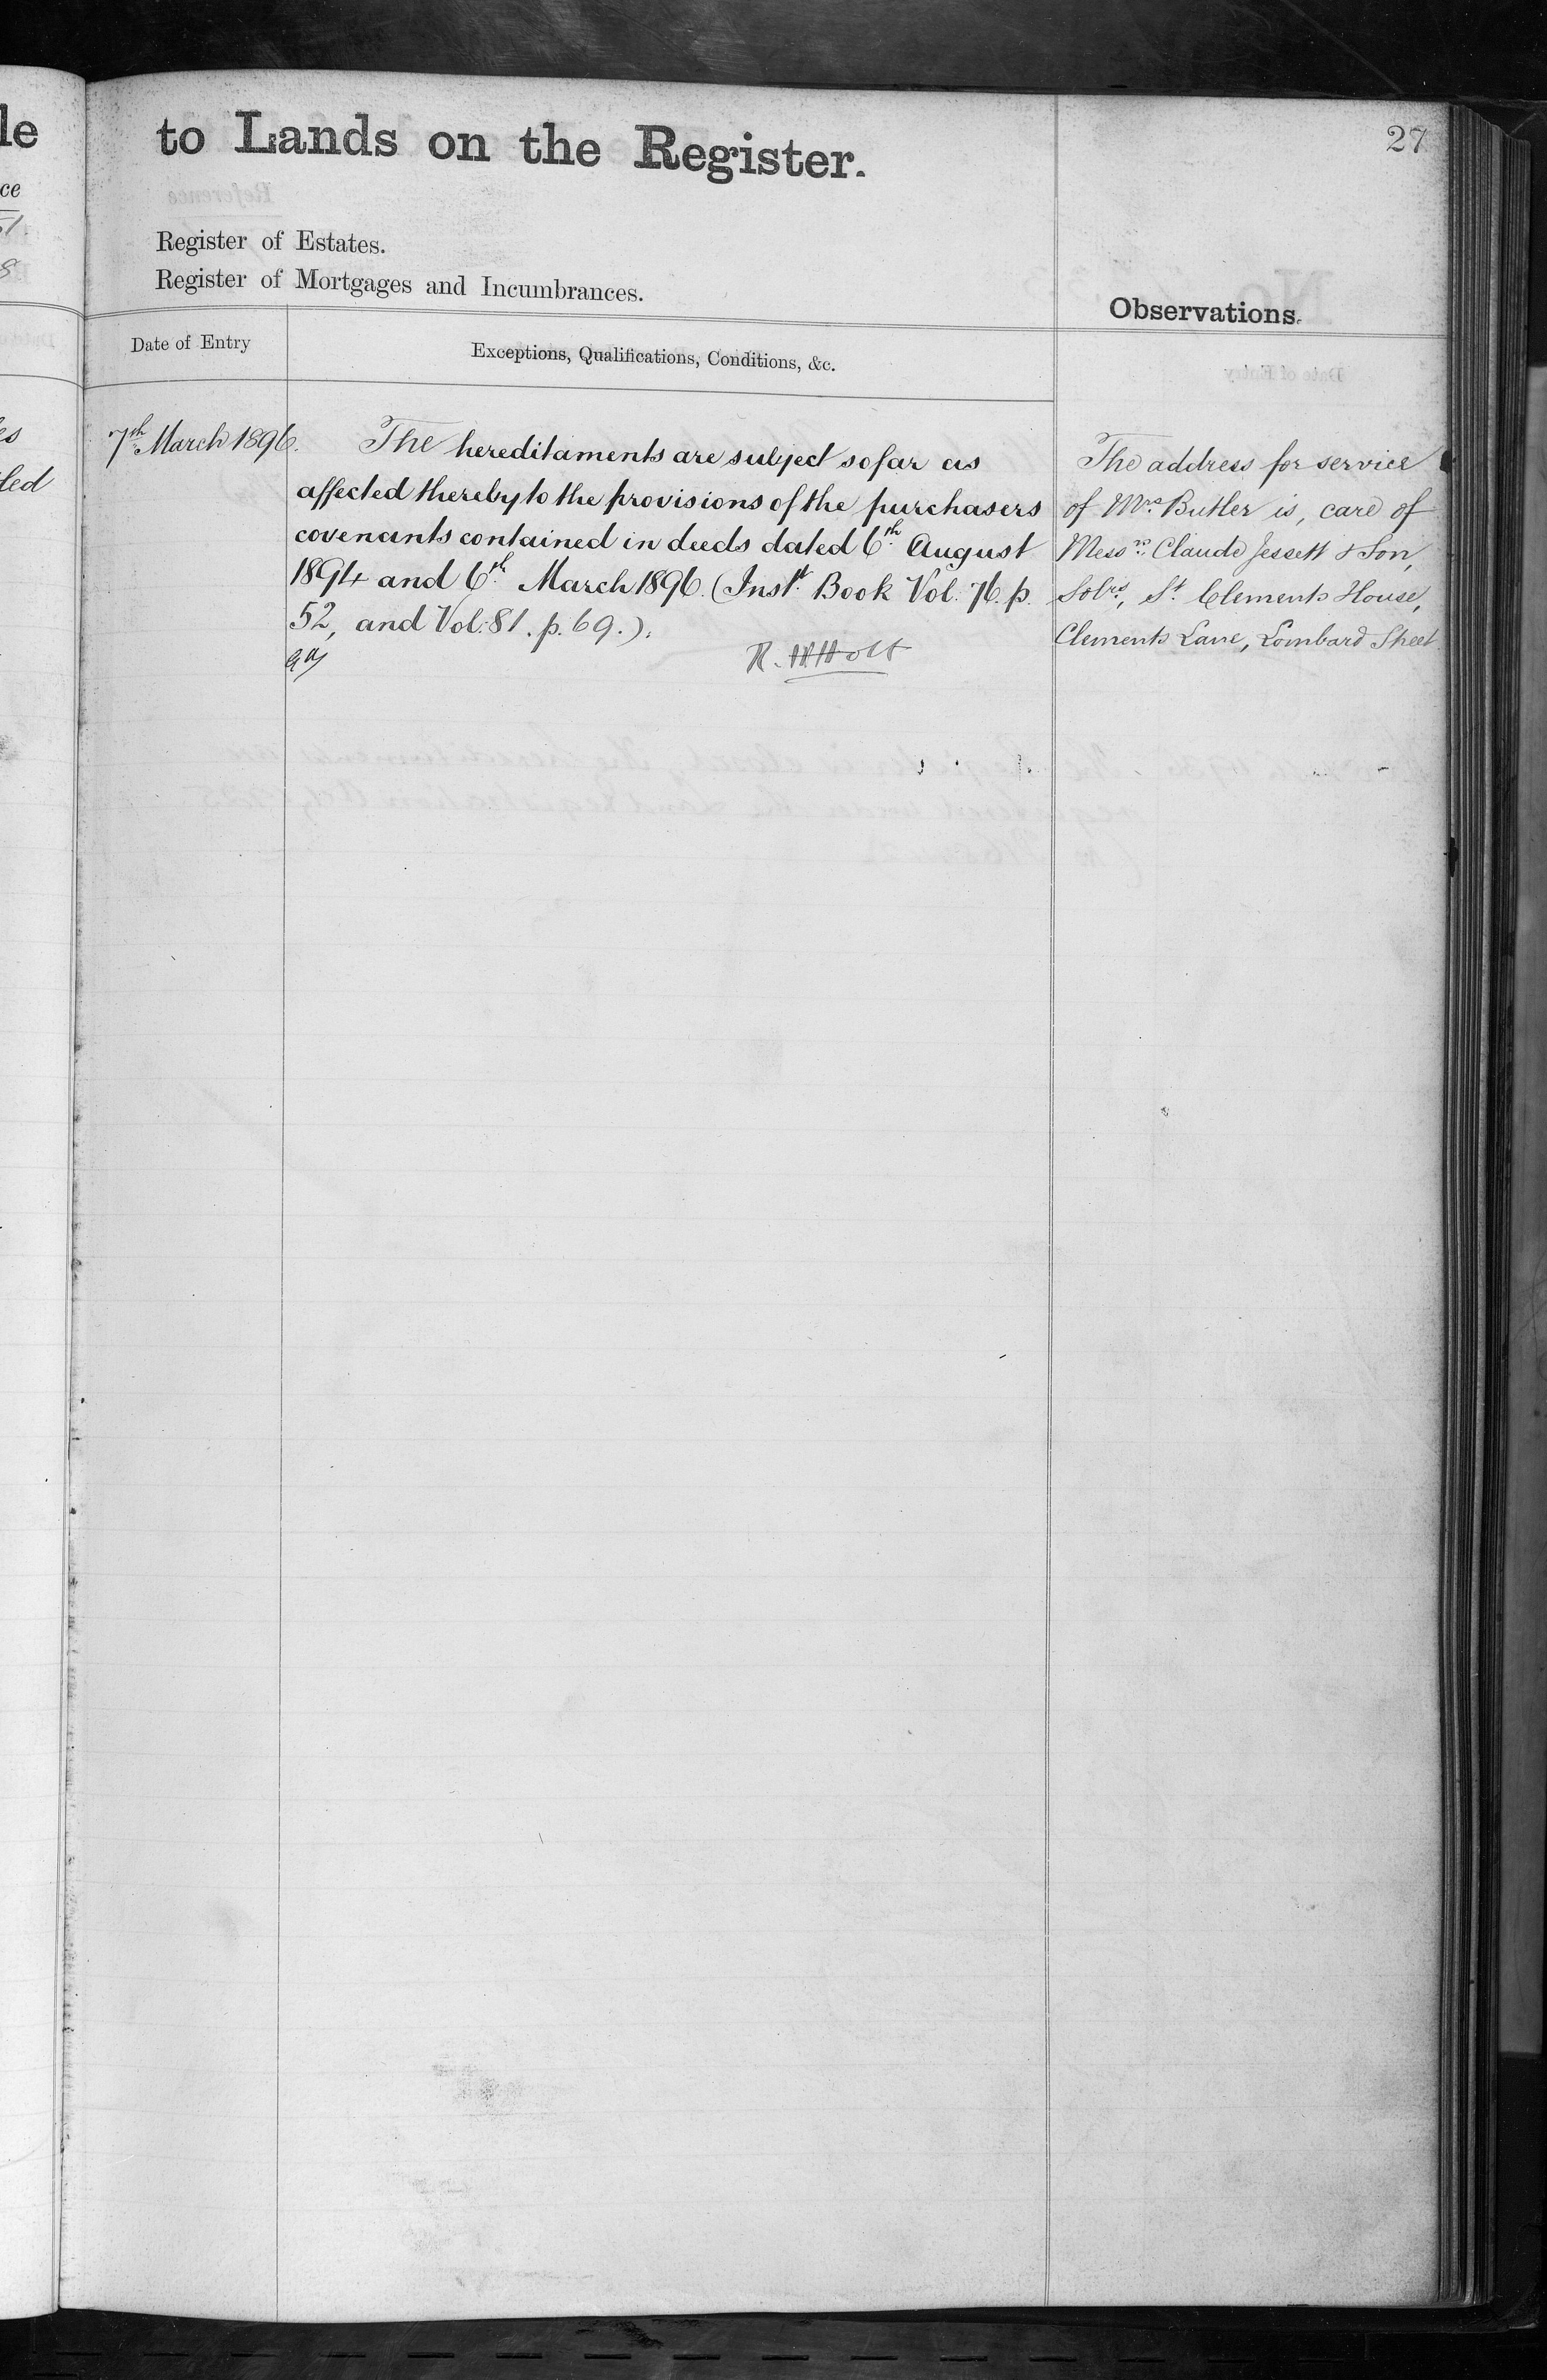 le
ce
led
to Lands on the Register.
27
Register of Estates.
Register of Mortgages and Incumbrances.
Observations.
Date of Entry
Exceptions, Qualifications, Conditions, &c.
7th March 1896.
The hereditaments are subject so far as
affected thereby to the provisions of the purchasers
covenants contained in deeds dated 6th August
1894 and 6th March 1896. (Inst. Book Vol. 76. p.
52, and Vol: 81. p. 69.).
R. Holt
The address for service
of Mrs. Butler is, care of
Messrs. Claude Jessett & Son,
Solrs, St. Clements House,
Clements Lane, Lombard Street